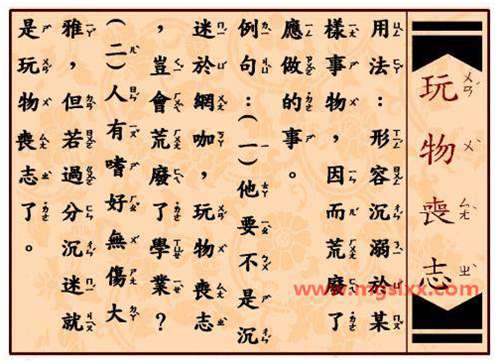 玩物喪志
用法：形容沉溺於某
樣事物，因而荒廢了
應做的事。
例句：（一）他要不是沉
迷於網咖，玩物喪志
，豈會荒廢了學業？
（二）人有嗜好無傷大
雅，但若過分沉迷就
是玩物喪志了。
www.mgsixx.com